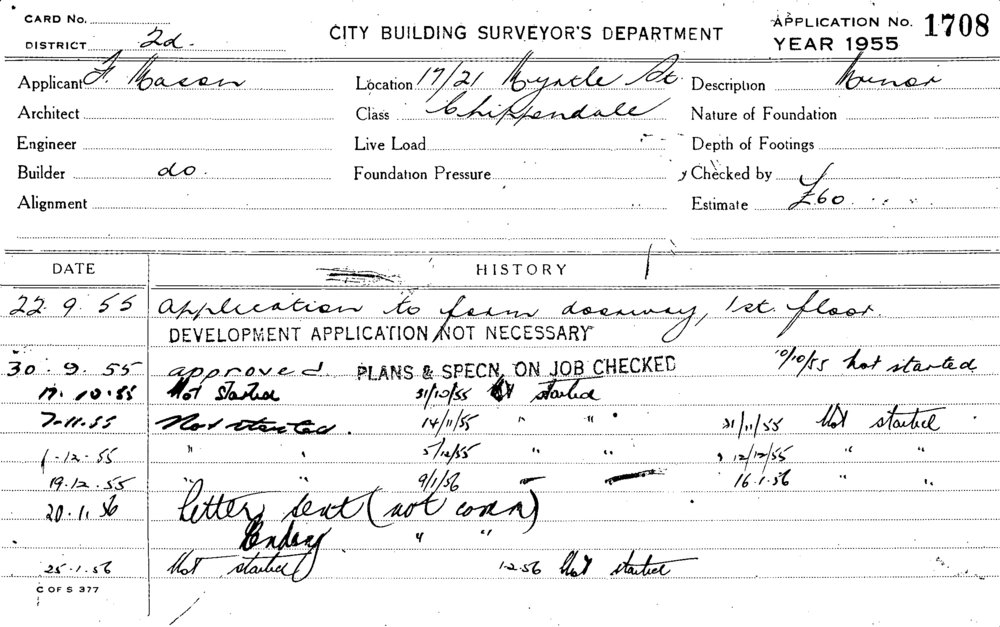 CARD No.
DISTRICT 2d.
CITY BUILDING SURVEYOR'S DEPARTMENT
APPLICATION No. 1708
YEAR 1955
Applicant F. Mason Location 17/21 Myrtle St. Description Minor
Architect Class Chippendale Nature of Foundation
Engineer Live Load Depth of Footings
Builder do. Foundation Pressure Checked by
Alignment Estimate £60
DATE HISTORY
22.9.55 Application to form doorway, 1st. floor.
DEVELOPMENT APPLICATION NOT NECESSARY
30.9.55 approved PLANS & SPECN. ON JOB CHECKED 10/10/55 Not started
17.10.55 Not started 31/10/55 Not started
7-11.55 Not started. 14/11/55 " " 21/11/55 Not started
1-12-55 " " 5/12/55 12/12/55 " "
19.12.55 " " 9/1/56 16.1.56 " "
20.1.56 Letters sent (not com)
" "
25.1.56 Not started 12.56 Not started
C OF S 377